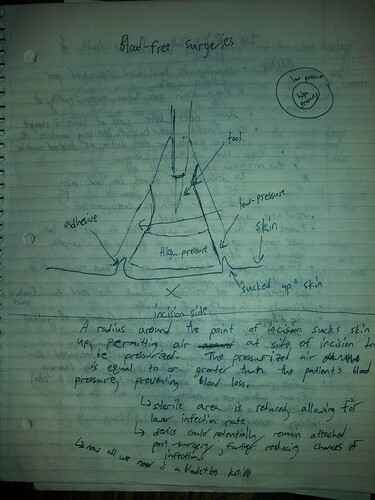 Blood-free surgeries
low pressure
high pressure
tool
low-pressure
adhesive
skin
High pressure
"sucked up" skin
X
incision side
A radius around the point of incision sucks skin
up, permitting air at side of incision to
be pressurized. The pressurized air
is equal to or greater than the patient's blood
pressure, preventing blood loss.
↳ sterile area is reduced, allowing for
lower infection rate
↳ device could potentially remain attached
post-surgery, further reducing chances of
infection
↳ now all we
need is a blade to knife